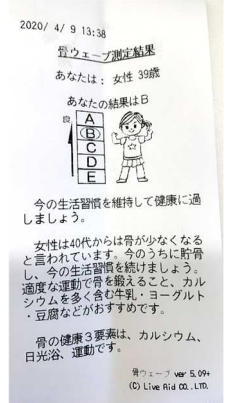 2020/ 4/ 9 13:38
骨ウェーブ測定結果
あなたは: 女性 39歳
あなたの結果はB
良
A
B
C
D
E
今の生活習慣を維持して健康に過
しましょう。
女性は40代からは骨が少なくなる
と言われています。今のうちに貯骨
し、今の生活習慣を続けましょう。
適度な運動で骨を鍛えること、カル
シウムを多く含む牛乳・ヨーグルト
・豆腐などがおすすめです。
骨の健康3要素は、カルシウム、
日光浴、運動です。
骨ウェーブ ver 5.09+
(C) Live Aid CO.,LTD.